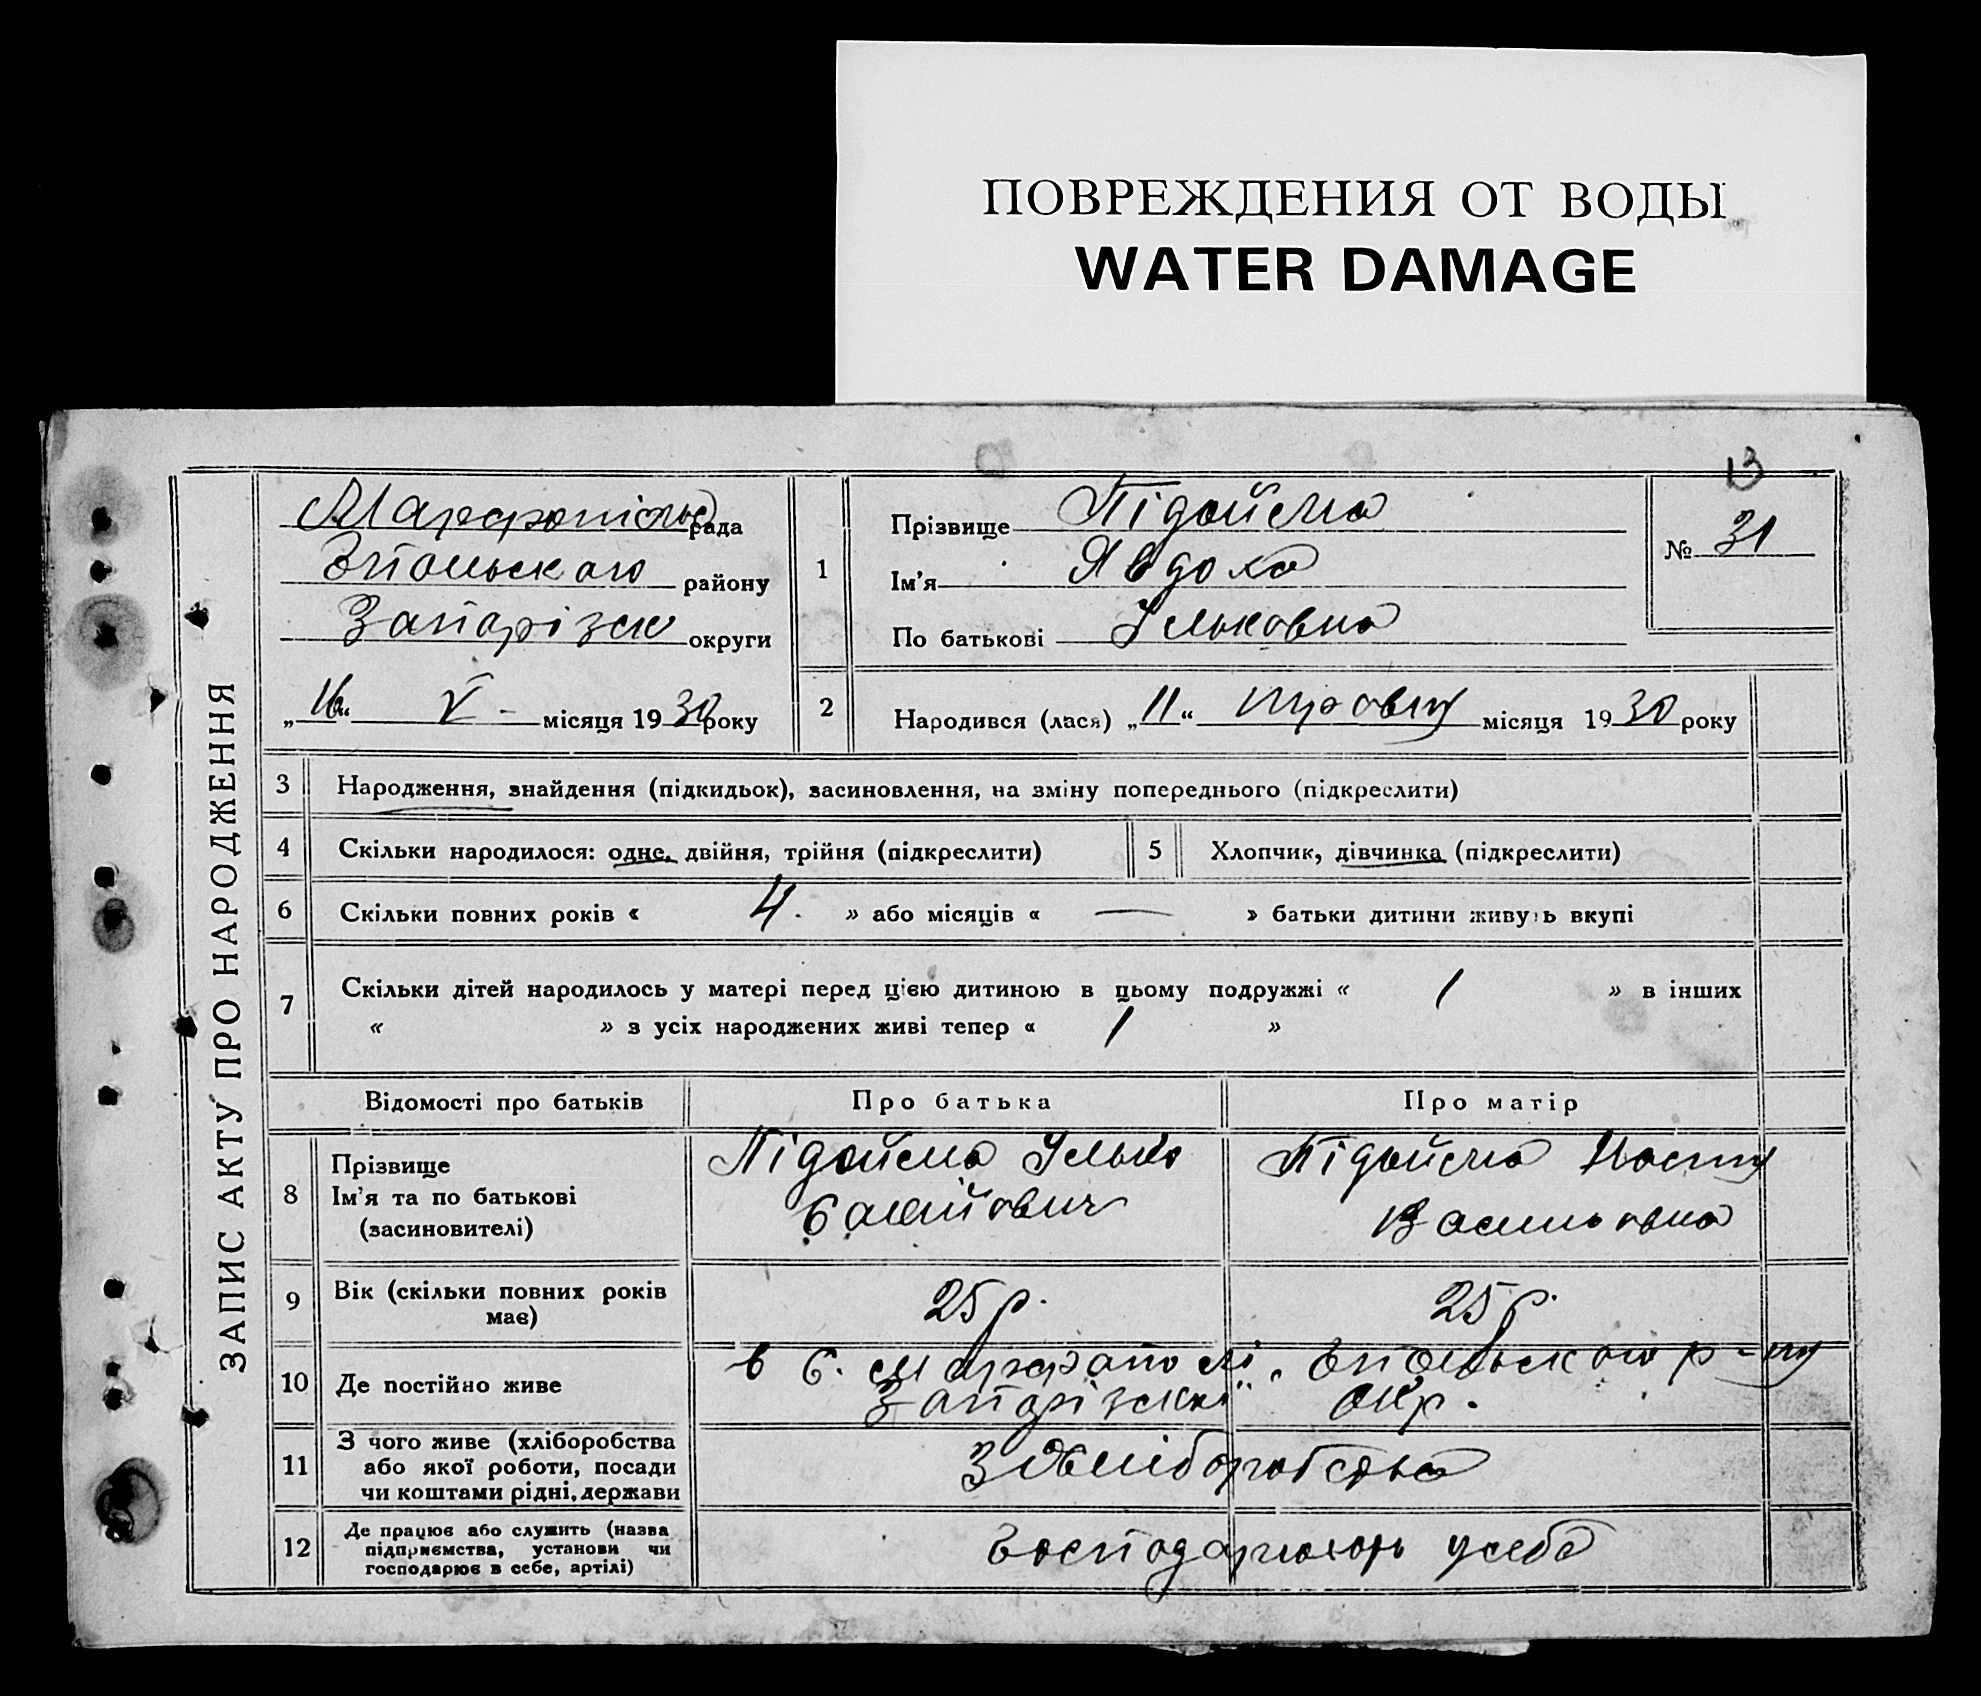 ПОВРЕЖДЕНИЯ ОТ ВОДЫ
WATER DAMAGE
13
ЗАПИС АКТУ ПРО НАРОДЖЕННЯ
Марфопільс рада
району
Запоріжск округи
„16“ V - місяця 1930 року
1
Прізвище Підойма
Ім’я Явдоха
По батькові Ульковна
№ 31
2
Народився (лася) „11“ травня місяця 1930 року
3 Народження, знайдення (підкидьок), засиновлення, на зміну попереднього (підкреслити)
4 Скільки народилося: одне, двійня, трійня (підкреслити)
5 Хлопчик, дівчинка (підкреслити)
6 Скільки повних років « 4. » або місяців « — » батьки дитини живуть вкупі
7 Скільки дітей народилось у матері перед цією дитиною в цьому подружжі « 1 » в інших
« » з усіх народжених живі тепер « 1 »
Відомості про батьків Про батька Про матір
8 Прізвище
Ім’я та по батькові
(засиновителі)
Підойма Улько
Підойма Настя
Васильовна
9 Вік (скільки повних років
має)
25 р. 25 р.
10 Де постійно живе
в с. Марфополі, р-ну
Запорізької окр.
11 З чого живе (хліборобства
або якої роботи, посади
чи коштами рідні, держави
З хліборобства
12 Де працює або служить (назва
підприємства, установи чи
господарює в себе, артілі)
усебе